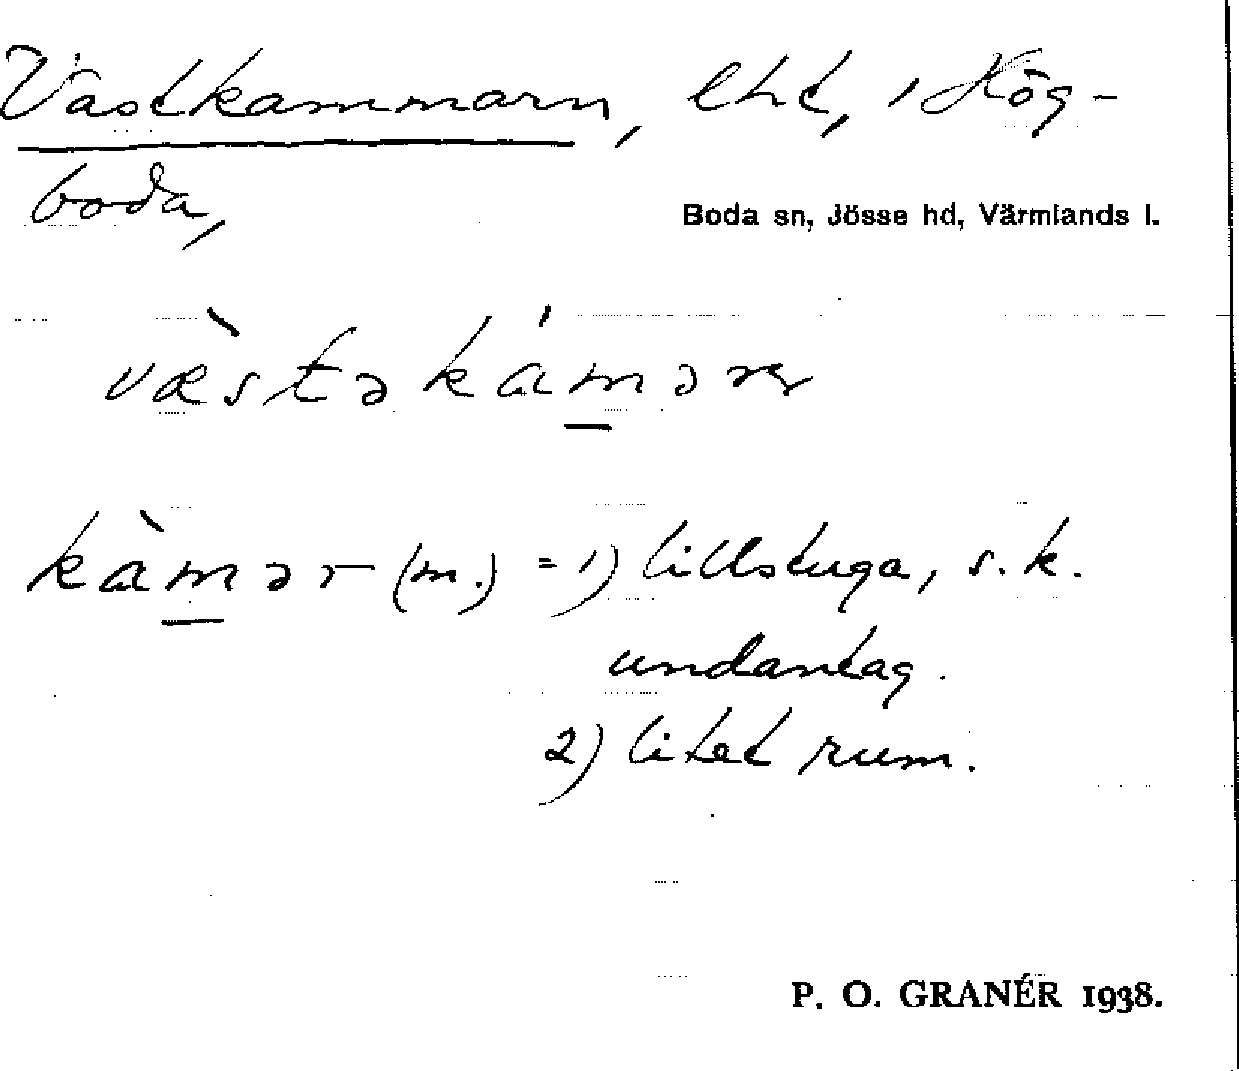 Västkammarn, lht, i Hög-
boda,
Boda sn, Jösse hd, Värmlands l.
væ̀stəkám̲ər
kàm̲ər (m.) = 1) lillstuga, s.k.
undantag.
2) litet rum.
P. O. GRANÉR 1938.